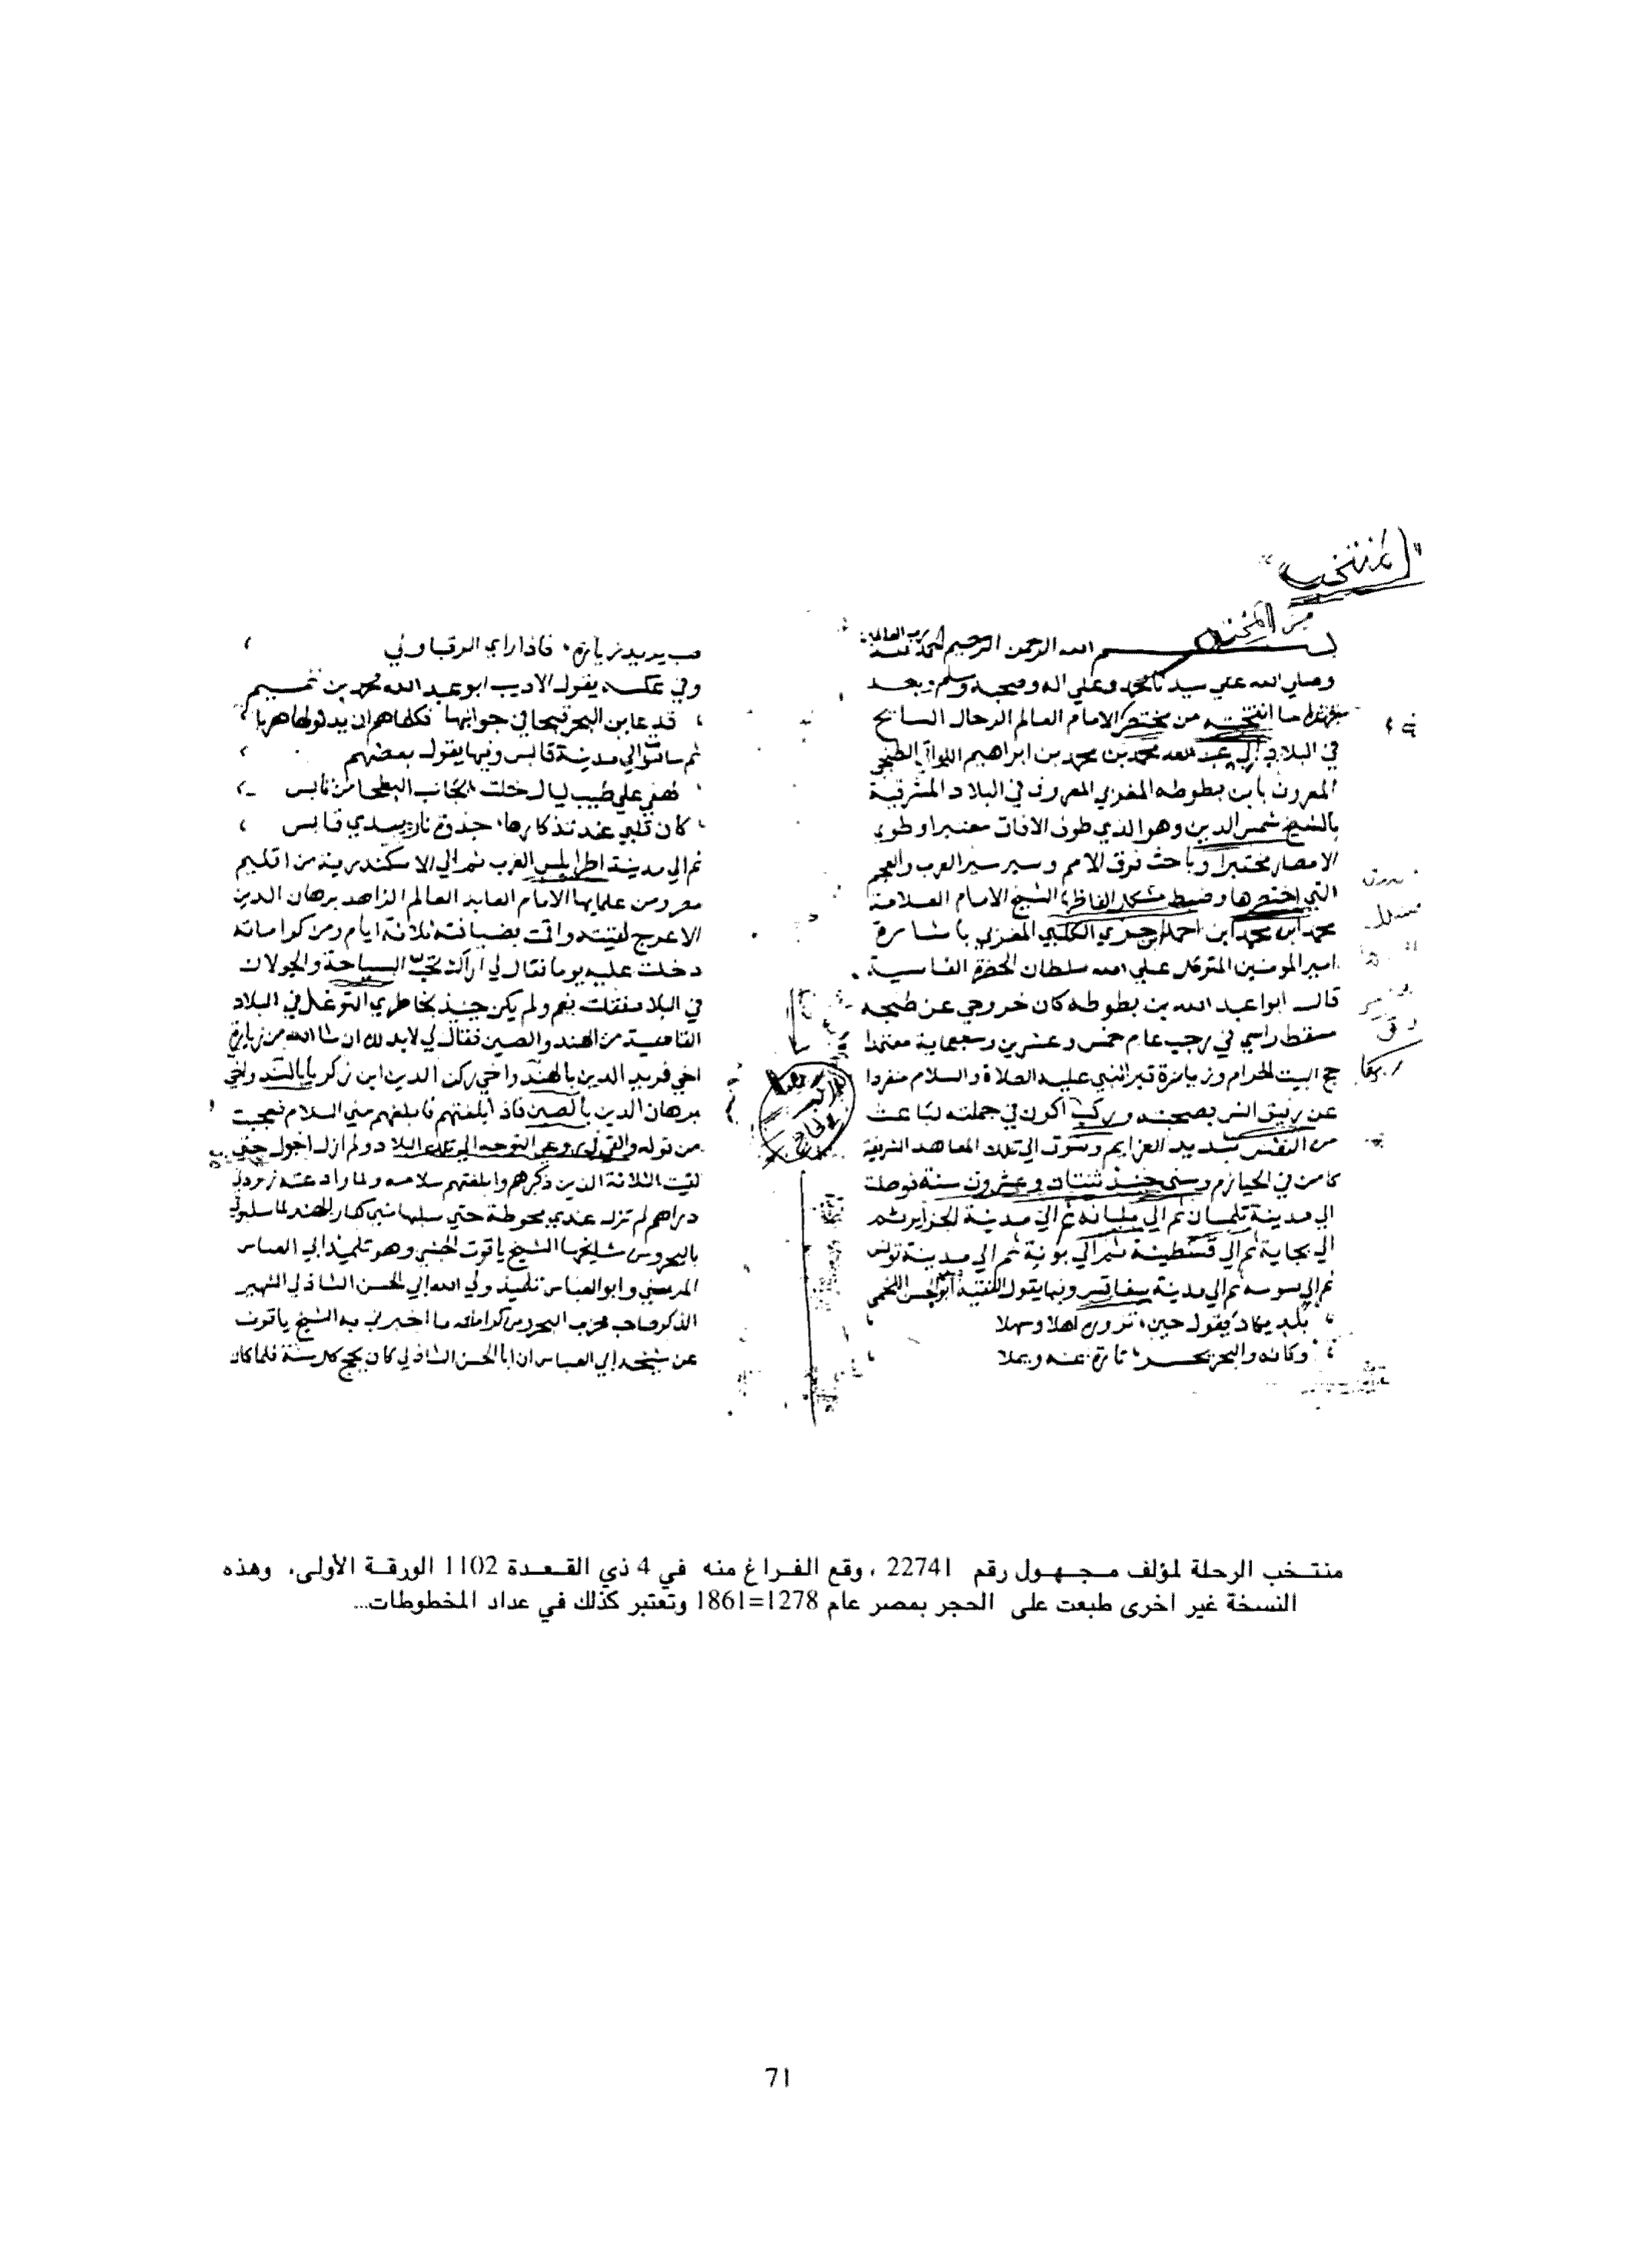 "المنتخب"
من المختصر
بسم الله الرحمن الرحيم الحمد لله رب العالمين
وصلي الله علي سيدنا محمد وعلي اله وصحبه وسلم وبعد
فهذا ما انتخبته من مختصر الامام العالم الرحال السايح
في البلاد ابي عبد الله محمد بن محمد بن ابراهيم اللواتي الطنجي
المعروف بابن بطوطه المغربي المعروف في البلاد المشرقية
بالشيخ شمس الدين وهو الذي طوف الافاق معتبرا وطوي
الامصار مختبرا وباحث فرق الامم وسبر سير العرب والعجم
التي اختصرها وضبط مشكل الفاظها الشيخ الامام العلامة
محمد ابن محمد ابن احمد ابن جزي الكلبي المغربي باشارة
امير المومنين المتوكل علي الله سلطان الحضرة الفاسية
قال ابوا عبد الله بن بطوطه كان خروجي عن طنجه
مسقط راسي في رجب عام خمس وعشرين وسبعماية معتمدا
حج البيت الحرام وزيارة قبر النبي عليه الصلاة والسلام منفردا
عن رفيق انس بصحبته وركب اكون في جملته لباعث
من النفس شديد العزايم وشوق الي تلك المعاهد الشريفة
كامن في الحيازم وسني حينئذ ثنتان وعشرون سنة فوصلت
الي مدينة تلمسان ثم الي مليانه ثم الي مدينة الجزاير ثم
الي بجاية ثم الي قسنطينة ثم الي بونة ثم الي مدينة تونس
ثم الي سوسه ثم الي مدينة سفاقس وبها يقول الفقيه ابو الحسن اللخمي
بلد يكاد يقول حين تزوره اهلا وسهلا
وكانه والبحر يحسر تارة عنه ويملا
صب يريد زيارة فاذا راي الرقبا ولي
وفي عكسه يقول الاديب ابو عبد الله محمد بن تميم
قد عاين البحر قبحا في جوانبها فكلما هم ان يدنو لها هربا
ثم سافرت الي مدينة قابس وفيها يقول بعضهم
لهفي علي طيب ليال خلت بجانب البطحا من قابس
كان قلبي عند تذكارها جذوة نار بيدي قابس
ثم الي مدينة اطرابلس الغرب ثم الي الاسكندرية من اقليم
مصر ومن علمايها الامام العابد العالم الزاهد برهان الدين
الاعرج لقيته واقمت بضيافته ثلاثة ايام ومن كراماته
دخلت عليه يوما فقال لي اراك تحب السياحة والجولان
في البلاد فقلت نعم ولم يكن حينئذ بخاطري التوغل في البلاد
القاصية من الهند والصين فقال لي لا بد لك ان شا الله من زيارة
اخي فريد الدين بالهند واخي ركن الدين ابن زكريا بالسند واخي
برهان الدين بالصين فاذا بلغتهم فابلغهم مني السلام فعجبت
من قوله والقي في روعي التوجه الي تلك البلاد ولم ازل اجول حتي
لقيت الثلاثة الذين ذكرهم وابلغتهم سلامه ولما وادعته زودني
دراهم لم تزل عندي محوطة حتي سلبها مني كفار الهند لما سلبوني
بالبحر ومن مشايخها الشيخ ياقوت الحبشي وهو تلميذ ابي العباس
المرسي وابو العباس تلميذ ولي الله ابي الحسن الشاذلي الشهير
الذكر صاحب حزب البحر ومن كراماته ما اخبرني به الشيخ ياقوت
عن شيخه ابي العباس ان ابا الحسن الشاذلي كان يحج كل سنة فلما كان
منتخب الرحلة لمؤلف مجهول رقم 22741 ، وقع الفراغ منه في 4 ذي القعدة 1102 الورقة الأولى. وهذه
النسخة غير اخرى طبعت على الحجر بمصر عام 1278=1861 وتعتبر كذلك في عداد المخطوطات...
71